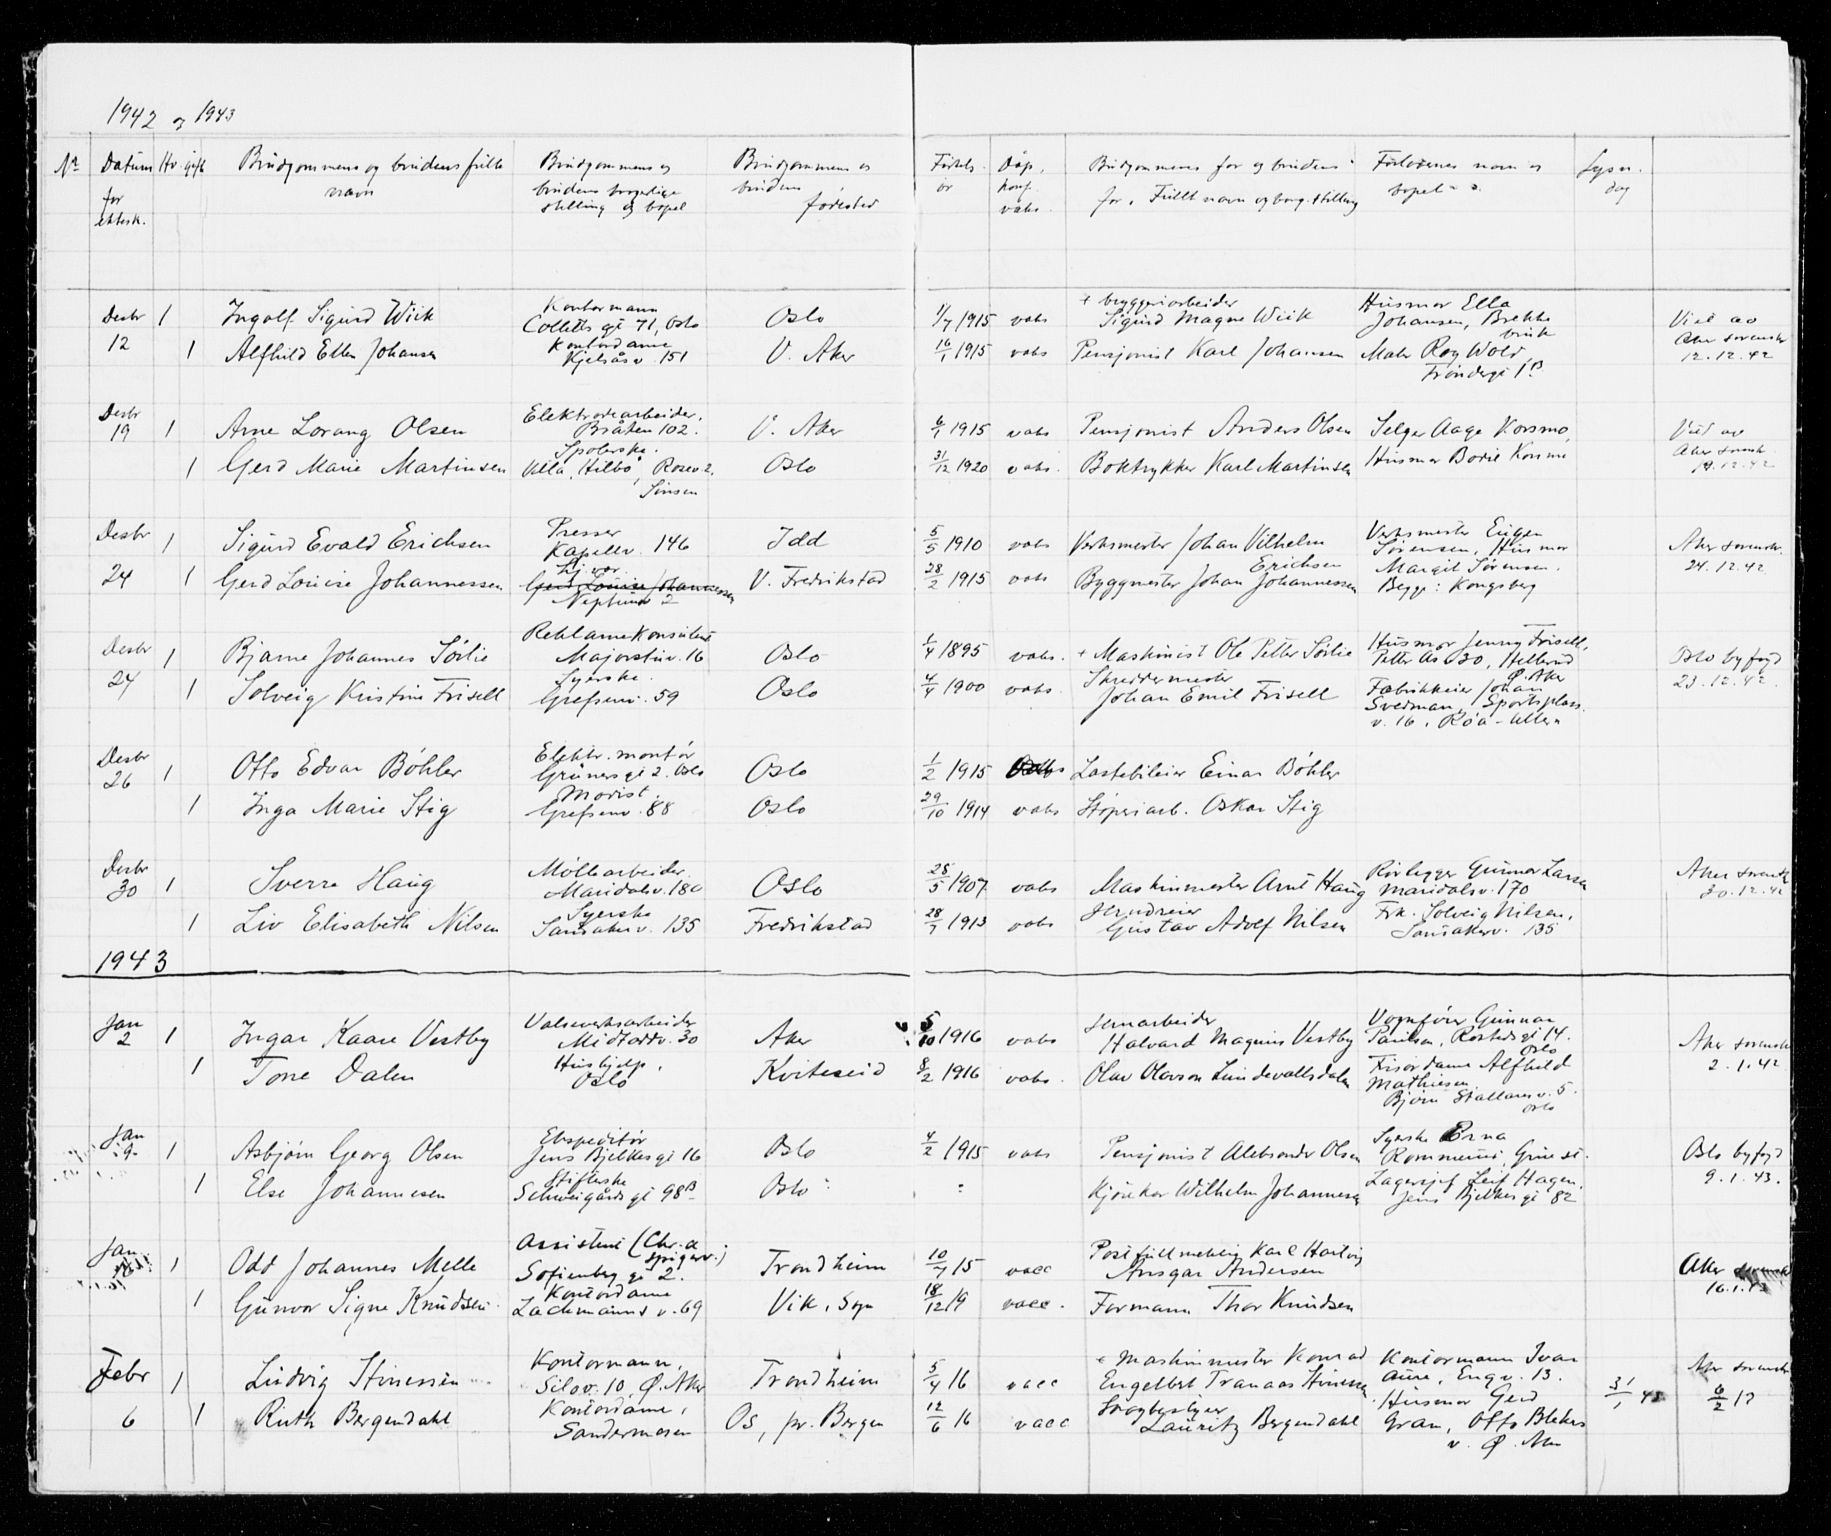 1942 og 1943
Nr Datum for ektesk. Hv. gift Brudgommens og brudens fulle navn Brudgommens og brudens borgerlige stilling og bopel Brudgommens og brudens fødested Fødsels år Dåp, konf. vaks. Brudgommens far og brudens far. Fullt navn og borg. stilling Forlovernes navn og bopel Lysn. dag
Desbr 12
1 Ingolf Sigurd Wiik Kontormann Colletts gt 71, Oslo Oslo 1/7 1915 vaks + bryggeriarbeider Sigurd Magne Wiik Husmor Ella Johansen, Brekke bruk
1 Alfhild Ellen Johansen Kontordame Kjelsåsv. 151 V. Aker 16/1 1915 vaks Pensjonist Karl Johansen Maler Roy Wold Trøndergt 1B
Viet av Aker sorenskr 12.12.42
Desbr 19
1 Arne Lorang Olsen Elektrodearbeider. Bråten 102. V. Aker 6/1 1915 vaks Pensjonist Anders Olsen Selger Aage Korsmo,
1 Gerd Marie Martinsen Spolerske. Villa Hilbo, Rosev 2, Sinsen Oslo 31/12 1920 vaks. Boktrykker Karl Martinsen Husmor Bodil Korsmo
Viet av Aker sorensk. 19.12.42
Desbr 24
1 Sigurd Evald Erichsen Presser Kapellv. 146 Idd 5/5 1910 vaks Verksmester Johan Vilhelm Erichsen Verksmester Eugen Sørensen, Husmor
1 Gerd Louise Johannessen Hj.vær. Gerd Louise Johannessen Neptunv 2 V. Fredrikstad 28/2 1915 vaks Byggmester Johan Johannessen Margit Sørensen. Begge: Kongsberg
Aker sorenskr. 24.12.42
Desbr 24
1 Bjarne Johannes Sörlie Reklamekonsulent Majorstuv. 16 Oslo 1/4 1895 vaks. + Maskinist Ole Petter Sörlie Husmor Jenny Frisell, Petter Ås 30, Hellerud Ø. Aker
1 Solveig Kristine Frisell Syerske. Grefsenv. 59 Oslo 4/4 1900 vaks. Skreddermester Johan Emil Frisell Fabrikkeier Johan Svedman, Sportsplass v. 16, Röa
Oslo byfogd 23.12.42.
Desbr 26
1 Otto Edvar Böhler Elektr. montör Grüners gt 2. Oslo Oslo 1/2 1915 vaks Lastebileier Einar Böhler
1 Inga Marie Stig Modist. Grefsenv. 88 Oslo 29/10 1914 vaks Støperiarb. Oskar Stig
Desbr 30
1 Sverre Haug Möllearbeider. Maridalsv. 180 Oslo 28/5 1907 vaks Maskinmester Arnt Haug Rörlegger Gunnar Larsen Maridalsv. 170
1 Liv Elisabeth Nilsen Syerske Sandakerv. 135 Fredrikstad 28/7 1913 vaks Gustav Adolf Nilsen Frk. Solveig Nilsen, Sandakerv. 135
Aker sorenskr 30.12.42
1943
Jan 2
1 Ingar Kaare Vestby Valseverksarbeider Midtoddv. 30 Aker 5/10 1916 vaks Jernarbeider Halvard Magnus Vestby Vognfører Gunnar Paulsen, Rosteds gt 14. Oslo
1 Tone Dalen Hushjelp, Oslo Kviteseid 8/2 1916 vaks. Olav Olavson Lundevallsdalen Frisördame Alfhild Mathiesen, Björn Stallares v. 5. Oslo
Aker sorenskr 2.1.42
Jan 9
1 Asbjørn Georg Olsen Ekspeditør Jens Bjelkes gt 16 Oslo 4/2 1915 vaks Pensjonist Aleksander Olsen Syerske Erna Rommerud, Grue st.
1 Else Johannesen Stifterske Schweigårds gt 98B Oslo Kjörekar Wilhelm Johannesen Lagersjef Leif Hagen, Jens Bjelkes gt 82
Oslo byfogd 9.1.43.
Jan.
1 Odd Johannes Melle Assistent (Chr.a spigerv.) Sofienberg gt 2. Trondheim 10/7 15 vacc Postfullmektig Karl Hartvig Ansgar Andersen
1 Gunvor Signe Knudsen Kontordame Lachmanns v. 69 Vik, Sogn 18/12 19 vacc. Formann Thor Knudsen
Aker sorensk 16.1.43
Febr 6
1 Ludvig Stinessen Kontormann, Silov. 10, Ø. Aker Trondheim 5/4 16 vacc + Maskinmester Konrad Engelbet Tranaas Stinessen Kontormann Ivar Aune, Engv. 13.
1 Ruth Bergendahl Kontordame, Sandermosen Os, pr. Bergen 12/6 16 vacc Lauritz Bergendahl Husmor Gerd Gran, Otto Blehrs v. Ø. Aker
31/1 43 Aker sorenskr 6/2 43